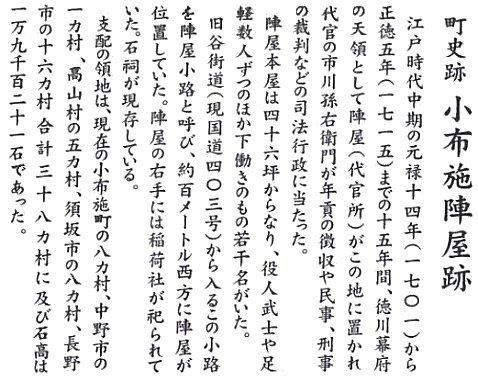 町史跡 小布施陣屋跡
江戸時代中期の元禄十四年(一七〇一)から
正徳五年(一七一五)までの十五年間、徳川幕府
の天領として陣屋(代官所)がこの地に置かれ
代官の市川孫右衛門が年貢の徴収や民事、刑事
の裁判などの司法行政に当たった。
陣屋本屋は四十六坪からなり、役人武士や足
軽数人ずつのほか下働きのもの若干名がいた。
旧谷街道(現国道四〇三号)から入るこの小路
を陣屋小路と呼び、約百メートル西方に陣屋が
位置していた。陣屋の右手には稲荷社が祀られて
いた。石祠が現存している。
支配の領地は、現在の小布施町の八カ村、中野市の
一カ村、高山村の五カ村、須坂市の八カ村、長野
市の十六カ村 合計 三十八カ村に及び石高は
一万九千百二十一石であった。